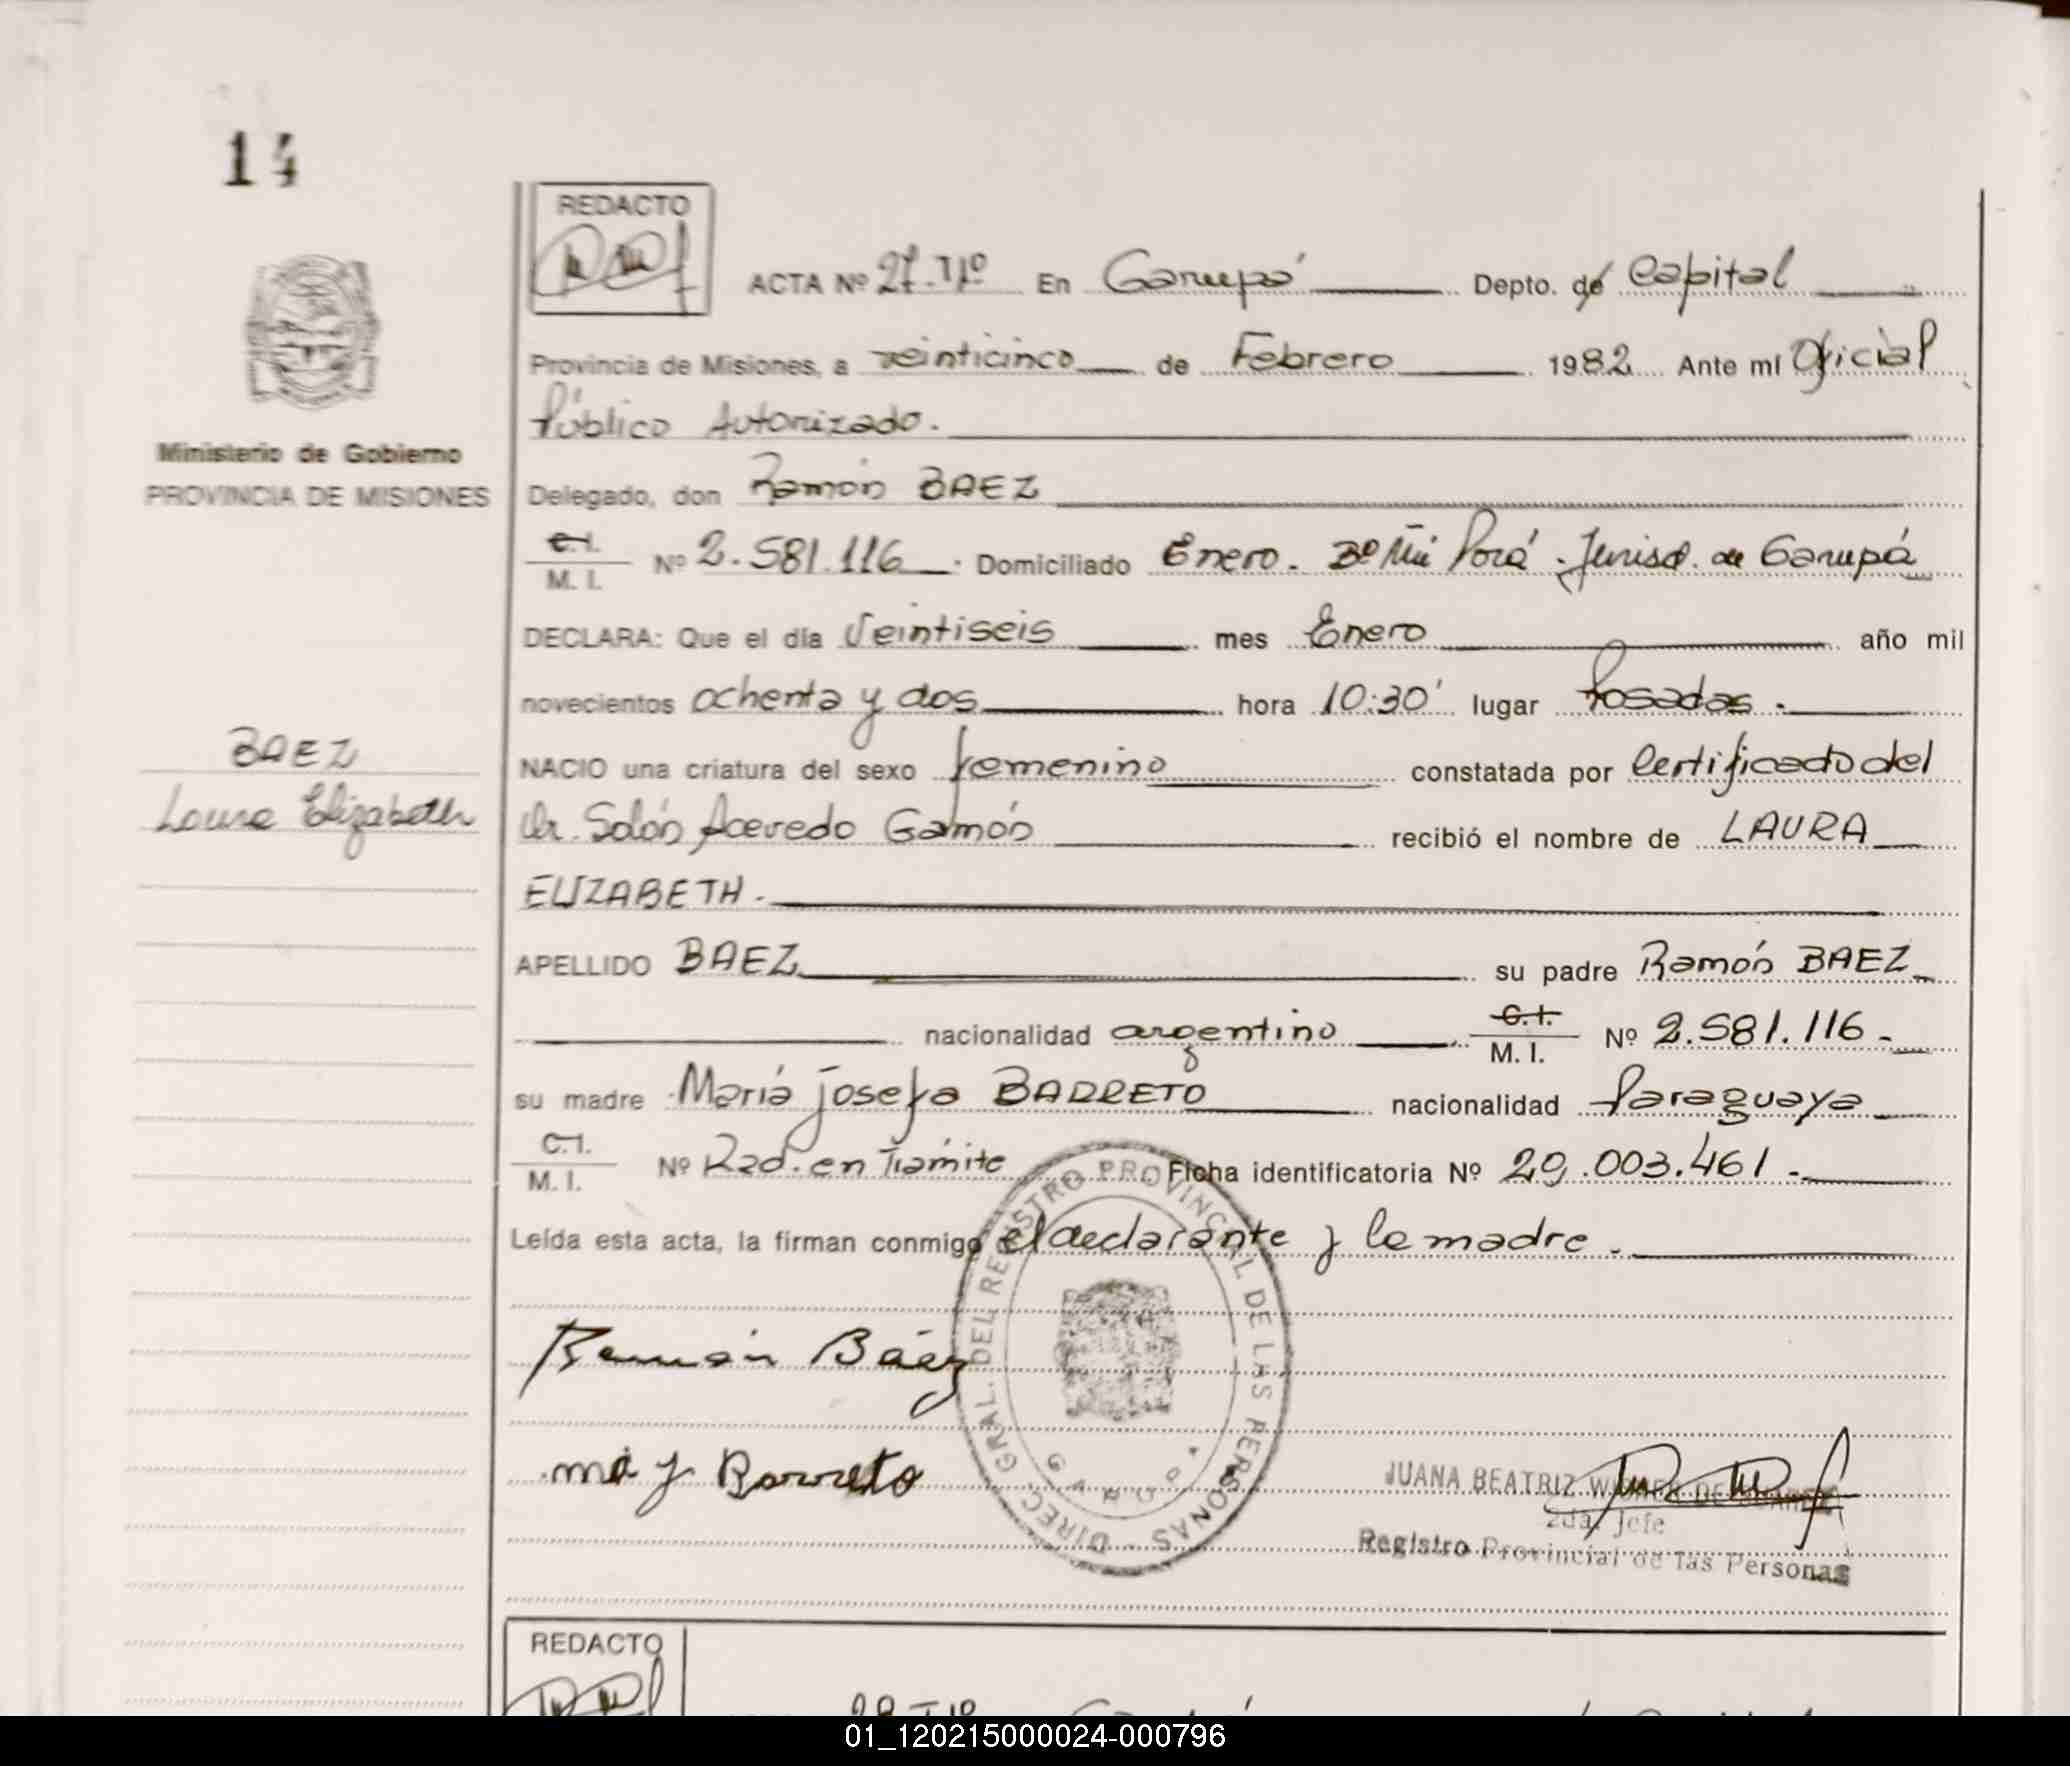 14
REDACTO
ACTA Nº 27. Tº Iº En Garupá Depto. de Capital
Provincia de Misiones, a veinticinco de Febrero 1982 Ante mí Oficial
Público Autorizado.
Ministerio de Gobierno
PROVINCIA DE MISIONES
Delegado, don Ramón BAEZ
C.I.
M. I. Nº 2.581.116 Domiciliado Enero. Bº Mi Porá. Jurisd. de Garupá
DECLARA: Que el día Veintiseis mes Enero año mil
novecientos ochenta y dos hora 10:30' lugar Posadas.
BAEZ
Laura Elizabeth
NACIO una criatura del sexo femenino constatada por Certificado del
Dr. Solón Acevedo Gamón recibió el nombre de LAURA
ELIZABETH.
APELLIDO BAEZ su padre Ramón BAEZ
nacionalidad argentino C.I.
M. I. Nº 2.581.116.
su madre María Josefa BARRETO nacionalidad Paraguaya
C.I.
M. I. Nº Rad. en Trámite Ficha identificatoria Nº 29.003.461.
Leída esta acta, la firman conmigo el declarante y la madre.
Ramón Báez
ma J Barreto
DIREC. GRAL. DEL REGISTRO PROVINCIAL DE LAS PERSONAS
GARUPA
JUANA BEATRIZ DE
2da. Jefe
Registro Provincial de las Personas
REDACTO
01_120215000024-000796